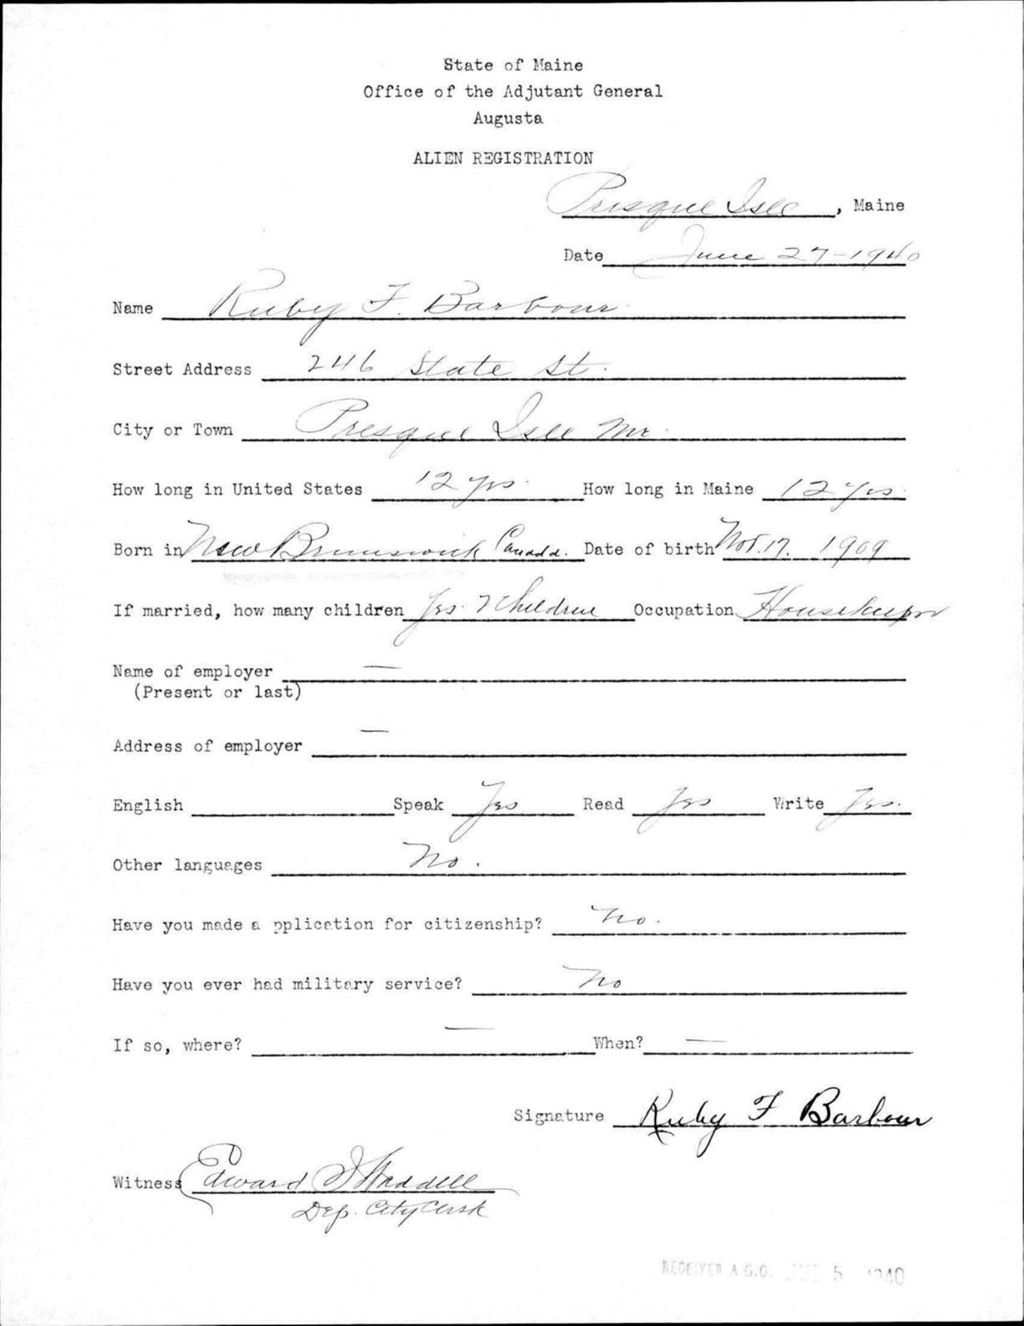 State of Maine
Office of the Adjutant General
Augusta
ALIEN REGISTRATION
Presque Isle, Maine
Date June 27-1940
Name Ruby F. Barbour
Street Address 246 State St.
City or Town Presque Isle Me.
How long in United States 12 yrs. How long in Maine 12 yrs.
Born in New Brunswick Canada. Date of birth Nov. 17. 1909
If married, how many children Yes. 7 Children Occupation Housekeeper
Name of employer —
(Present or last)
Address of employer —
English Speak Yes Read Yes Write Yes.
Other languages No.
Have you made a pplication for citizenship? No.
Have you ever had military service? No
If so, where? — When? —
Signature Ruby F Barbour
Witness Edward Waddell
Dep. City Clerk
RECEIVED A.G.O. 5 1940